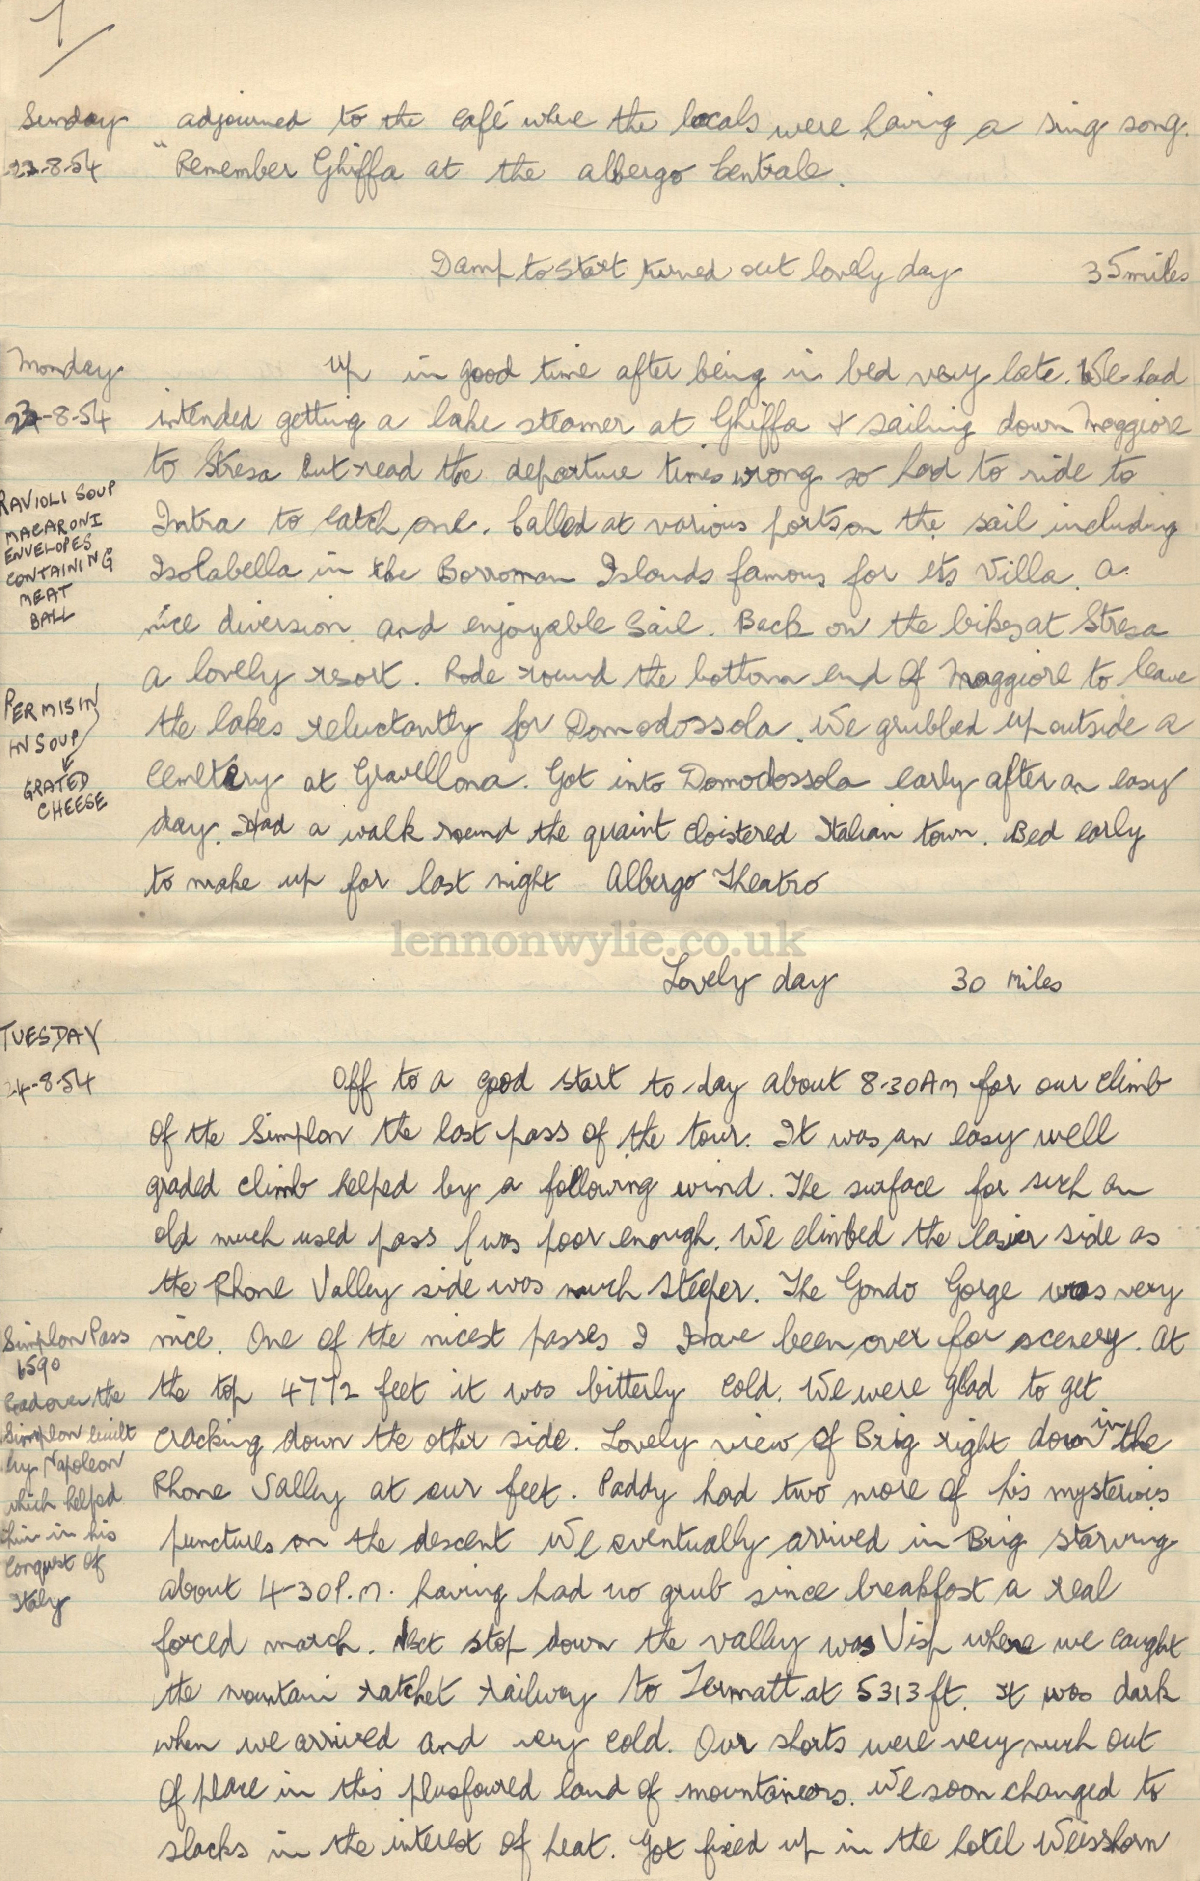 7
Sunday adjourned to the café where the locals were having a sing song.
22-8-54 "Remember Ghiffa at the albergo Centrale.
Damp to start turned out lovely day 35 miles
Monday up in good time after being in bed very late. We had
23-8-54 intended getting a lake steamer at Ghiffa & sailing down Maggiore
to Stresa but read the departure times wrong so had to ride to
Intra to catch one. Called at various ports on the sail including
Isolabella in the Borroman Islands famous for its Villa. A
nice diversion and enjoyable sail. Back on the bikes at Stresa
a lovely resort. Rode round the bottom end of Maggiore to leave
the lakes reluctantly for Domodossola. We grubbed up outside a
Cemetery at Gravellona. Got into Domodossola early after an easy
day. Had a walk round the quaint Cloistered Italian town. Bed early
to make up for last night Albergo Theatro
RAVIOLI SOUP
MACARONI
ENVELOPES
CONTAINING
MEAT
BALL
PERMISIN
IN SOUP
GRATED
CHEESE
lennonwylie.co.uk
Lovely day 30 miles
TUESDAY
24-8-54 Off to a good start to-day about 8-30AM for our climb
of the Simplon the last pass of the tour. It was an easy well
graded climb helped by a following wind. The surface for such an
old much used pass was poor enough. We climbed the easier side as
the Rhone Valley side was much steeper. The Gondo Gorge was very
nice. One of the nicest passes I have been over for scenery. At
the top 4772 feet it was bitterly cold. We were glad to get
cracking down the other side. Lovely view of Brig right down in the
Rhone Valley at our feet. Paddy had two more of his mysterious
punctures on the descent We eventually arrived in Brig starving
about 4-30P.M. having had no grub since breakfast a real
forced march. Next stop down the valley was Visp where we caught
the mountain ratchet railway to Zermatt at 5313 ft. It was dark
when we arrived and very cold. Our shorts were very much out
of place in this plusfoured land of mountaineers. We soon changed to
slacks in the interest of heat. Got fixed up in the hotel Weisshorn
Simplon Pass
6590
Road over the
Simplon built
by Napoleon
which helped
him in his
Conquest of
Italy